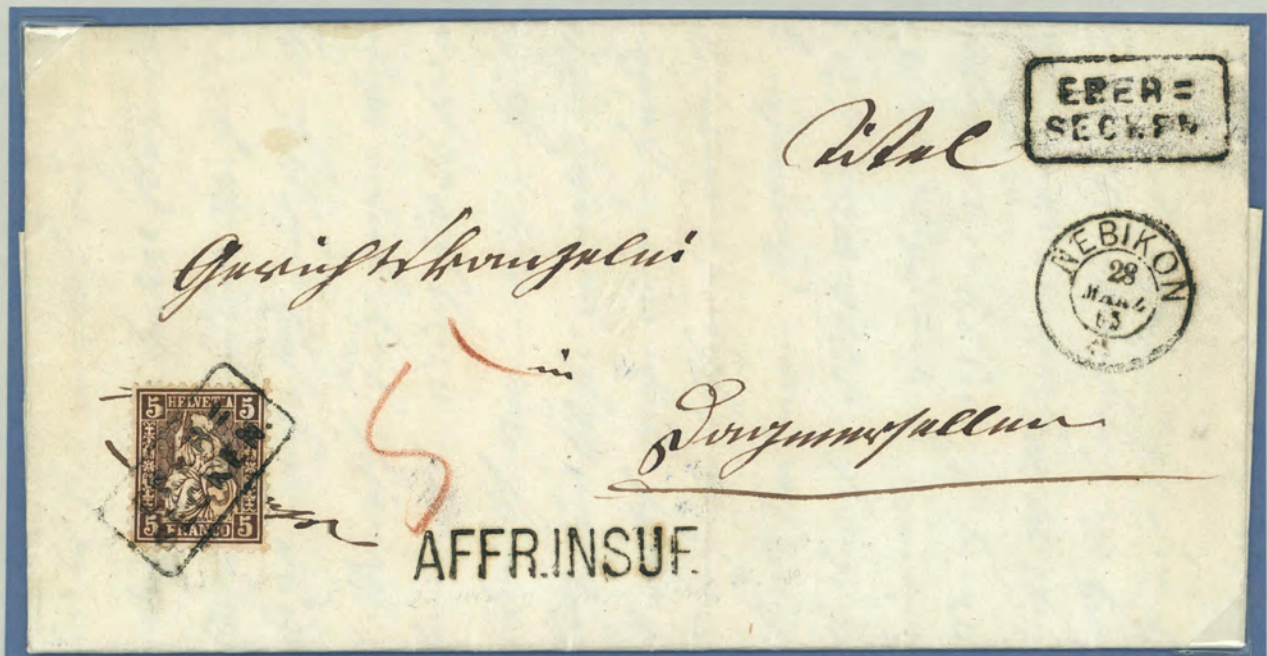 EBER=
SECKEN.
Titel
NEBIKON
28
MÄRZ
63
Gerichtskanzelei
5
in
Dagmersellen
5 HELVETIA 5
5 FRANCO 5
KEN.
AFFR.INSUF.